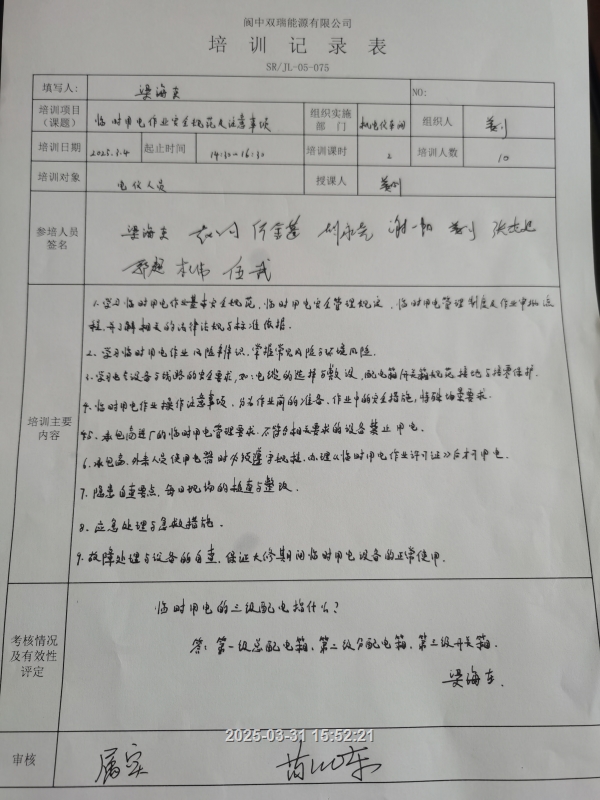 阆中双瑞能源有限公司
培训记录表
SR/JL-05-075
填写人: 梁海东 NO:
培训项目（课题） 临时用电作业安全规范及注意事项 组织实施部门 机电仪车间 组织人
培训日期 2025.3.4 起止时间 14:30-16:30 培训课时 2 培训人数 10
培训对象 电仪人员 授课人
参培人员签名 梁海东
伍武
培训主要内容
1.学习临时用电作业基本安全规范，临时用电安全管理规定，临时用电管理制度及作业审批流
程，并了解相关的法律法规与标准依据.
2.学习临时用电作业风险辨识，掌握常见风险与环境风险.
3.学习电气设备与线路的安全要求，如：电缆的选择与敷设，配电箱/开关箱规范接地与接零保护.
4.临时用电作业操作注意事项，分为作业前的准备、作业中的安全措施，特殊场景要求.
5.承包商进厂的临时用电管理要求，不符合相关要求的设备禁止用电.
6.承包商、外来人员使用电器时必须遵守规程，办理《临时用电作业许可证》后才可用电.
7.隐患自查要点，每日现场的检查与整改.
8.应急处理与急救措施.
9.故障处理与设备的自查，保证大修期间临时用电设备的正常使用.
考核情况及有效性评定
临时用电的三级配电指什么？
答：第一级总配电箱、第二级分配电箱、第三级开关箱.
梁海东.
2025-03-31 15:52:21
审核 属实